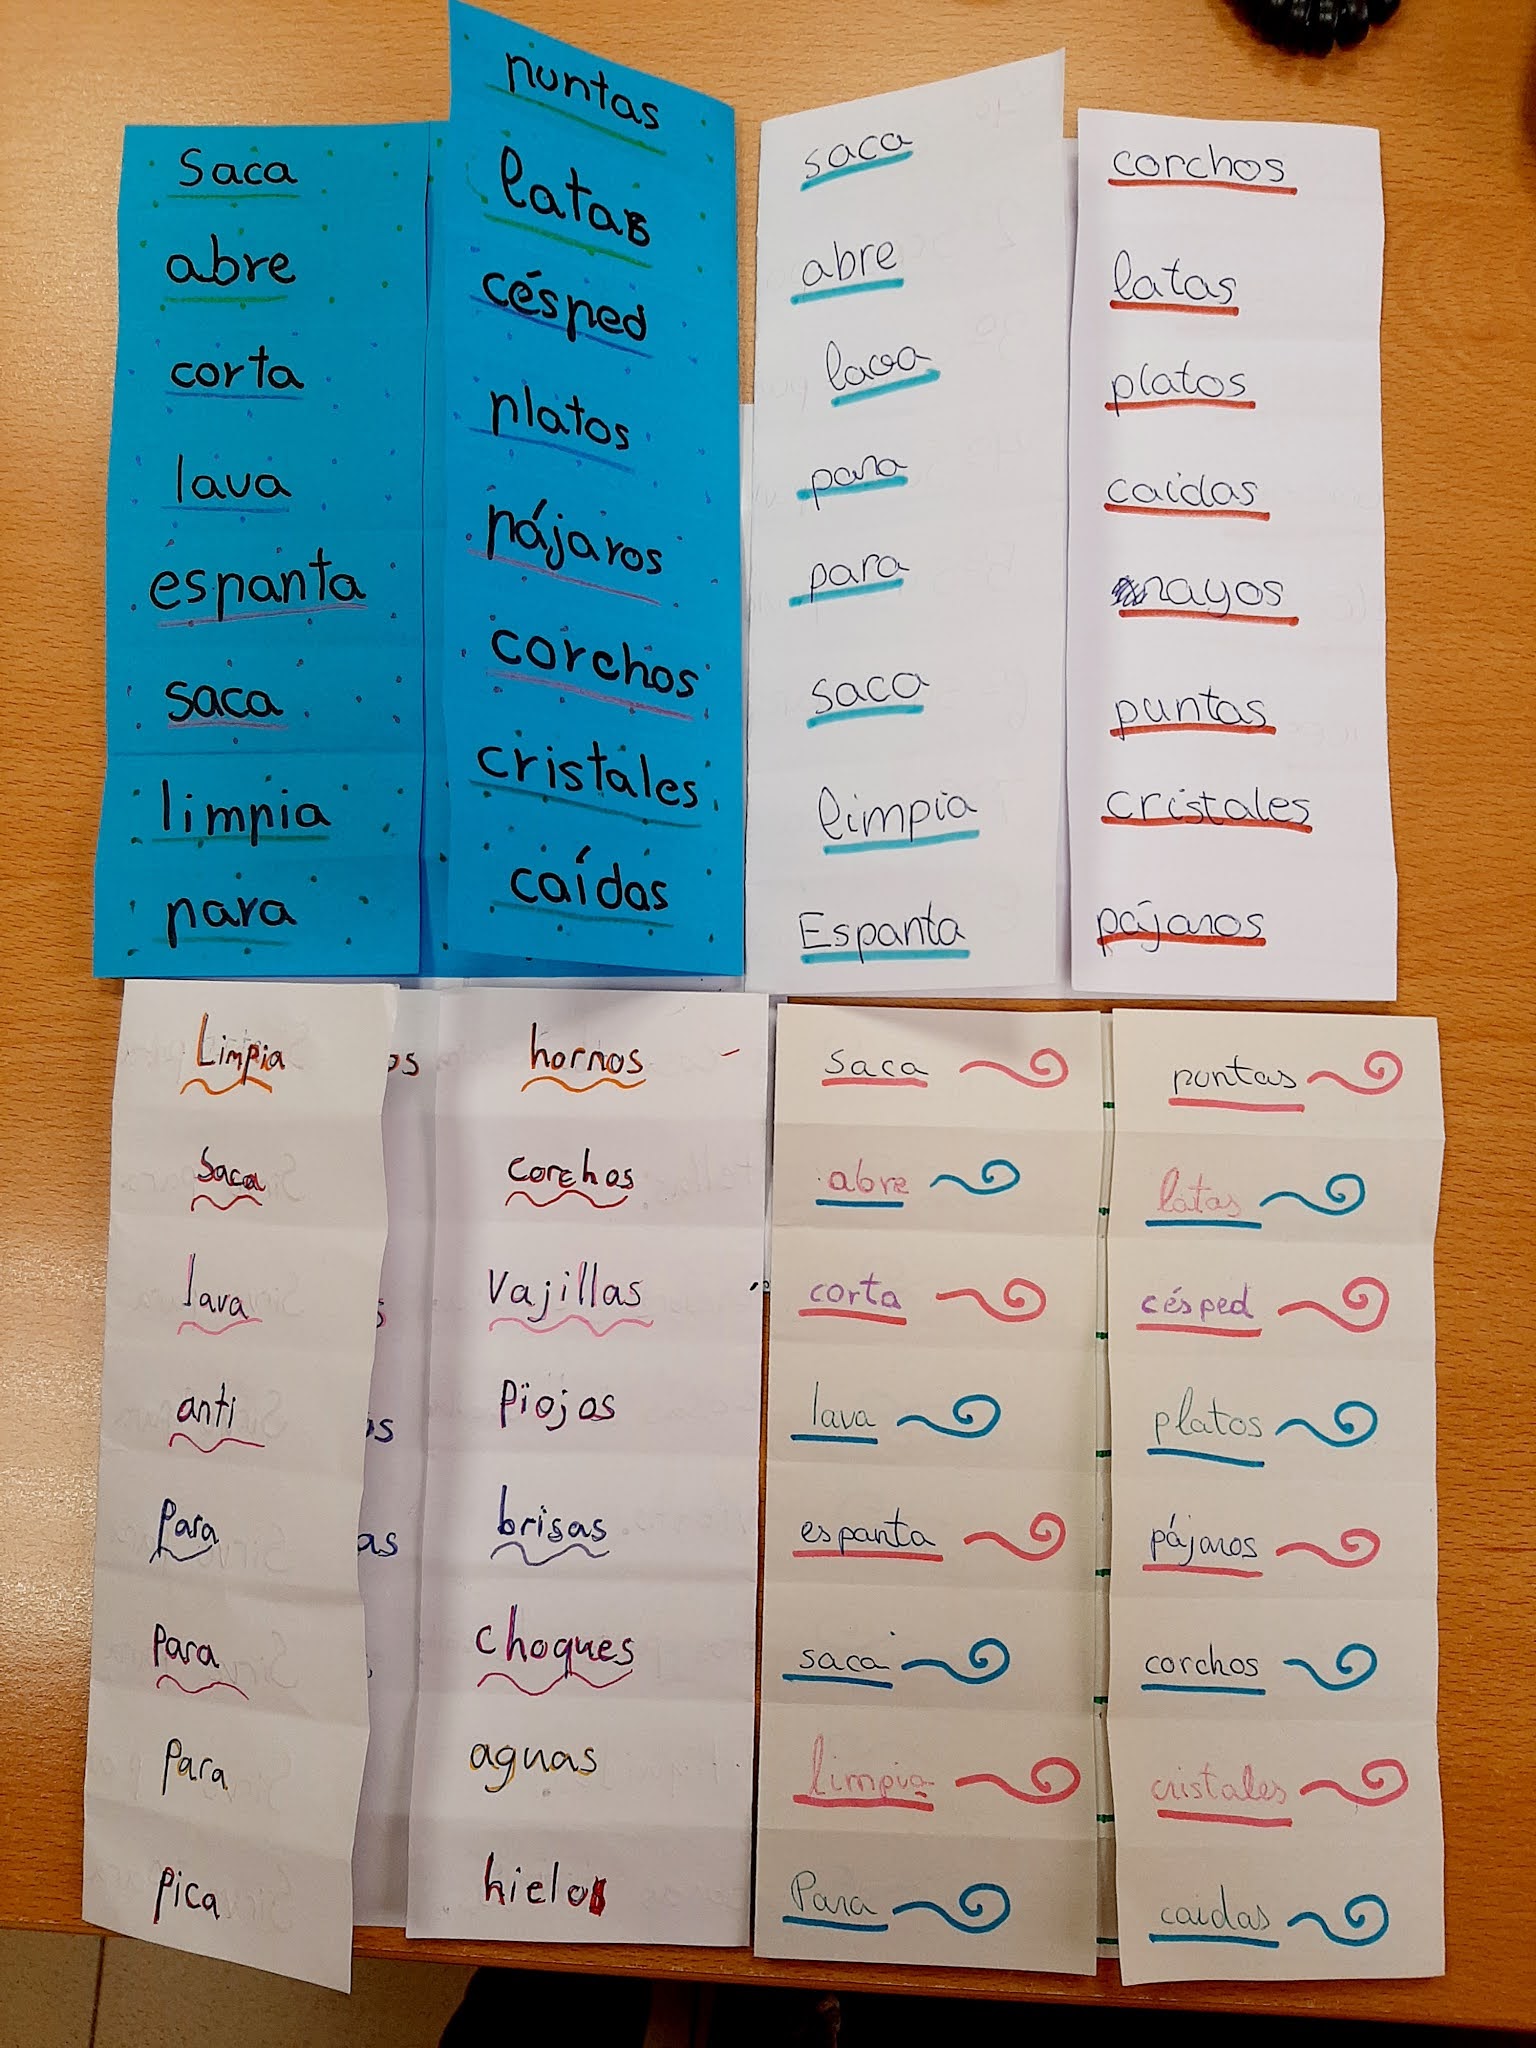 saca puntas
abre latas
corta césped
lava platos
espanta pájaros
saca corchos
limpia cristales
para caídas
saca corchos
abre latas
lava platos
para caidas
para rayos
saca puntas
limpia cristales
Espanta pájaros
Limpia hornos
Saca corchos
lava vajillas
anti piojos
para brisas
para choques
para aguas
pica hielo
saca puntas
abre latas
corta césped
lava platos
espanta pájaros
saca corchos
limpia cristales
Para caidas